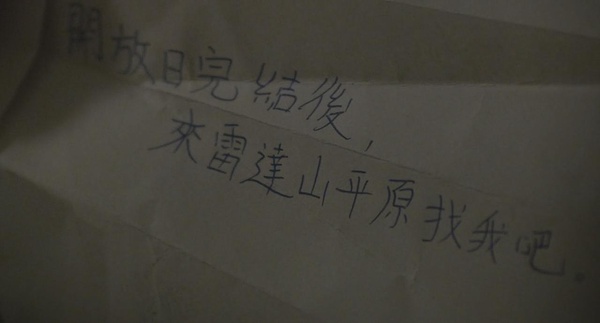 開放日完結後，
來雷達山平原找我吧。